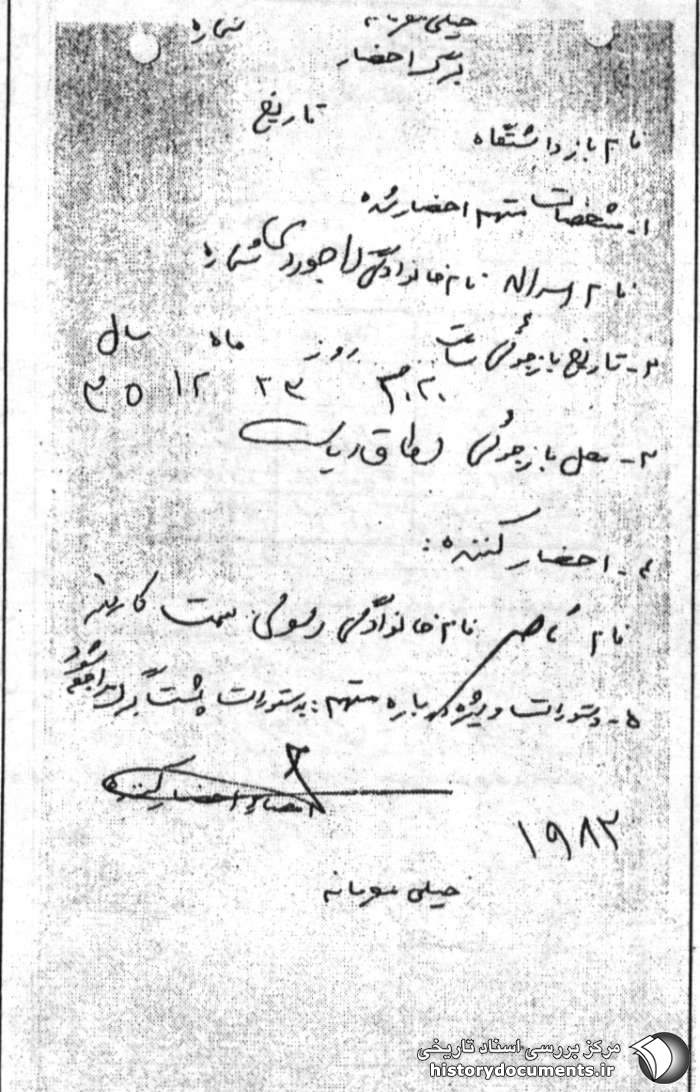 خیلی محرمانه شماره
برگ احضار
تاریخ
نام بازداشتگاه
۱- مشخصات متهم احضار شده
نام اسداله نام خانوادگی لاجوردی شماره
۲- تاریخ بازجوئی ساعت روز ماه سال
۲۳ ۱۲ ۳۵
۳- محل بازجوئی اطاق ریاست
۴- احضار کننده:
نام ناصر نام خانوادگی رسولی سمت
۵- دستورات ویژه درباره متهم: بدستورات پشت برگ مراجعه شود
امضاء احضار کننده
۱۹۸۳
خیلی محرمانه
مرکز بررسی اسناد تاریخی
historydocuments.ir